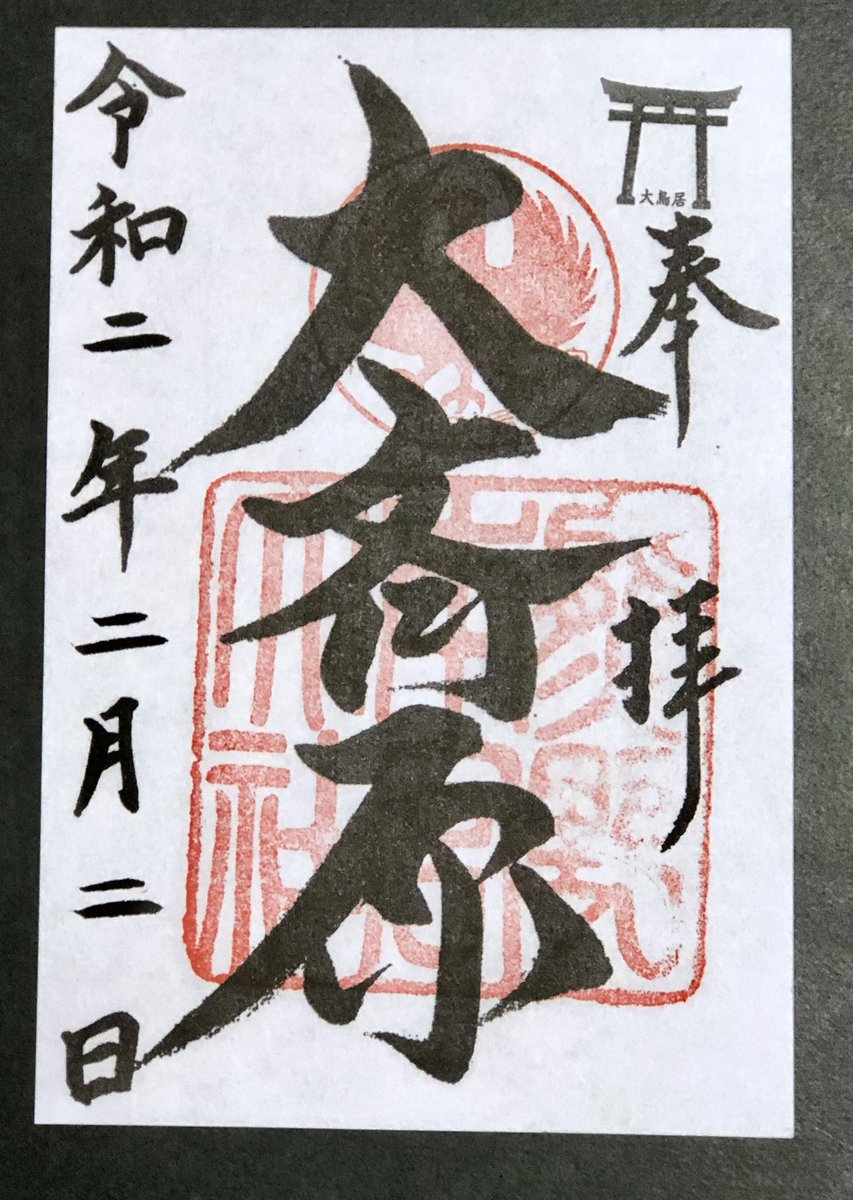 大鳥居
奉拝
大斎原
令和二年二月二日